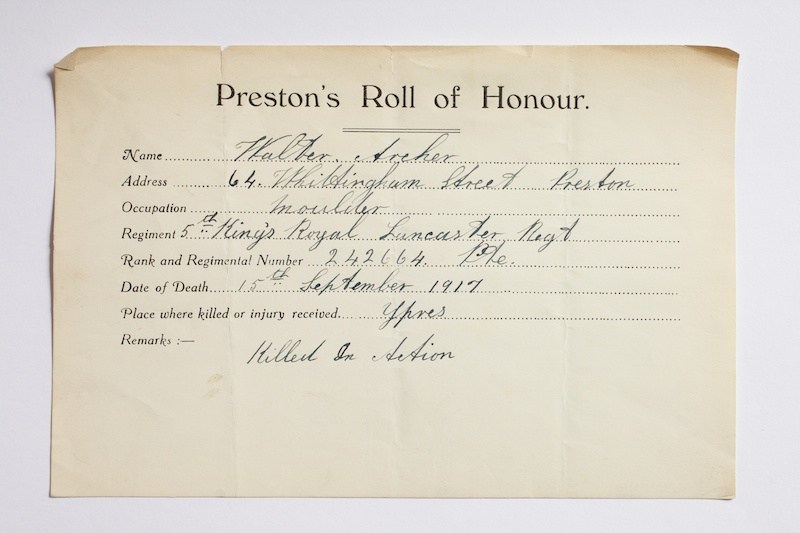 Preston's Roll of Honour.
Name Walter. Archer
Address 64. Whittingham Street Preston
Occupation Moulder
Regiment 5th King's Royal Lancaster Regt
Rank and Regimental Number 242664. Pte.
Date of Death 15th September 1917
Place where killed or injury received. Ypres
Remarks :—
Killed In Action